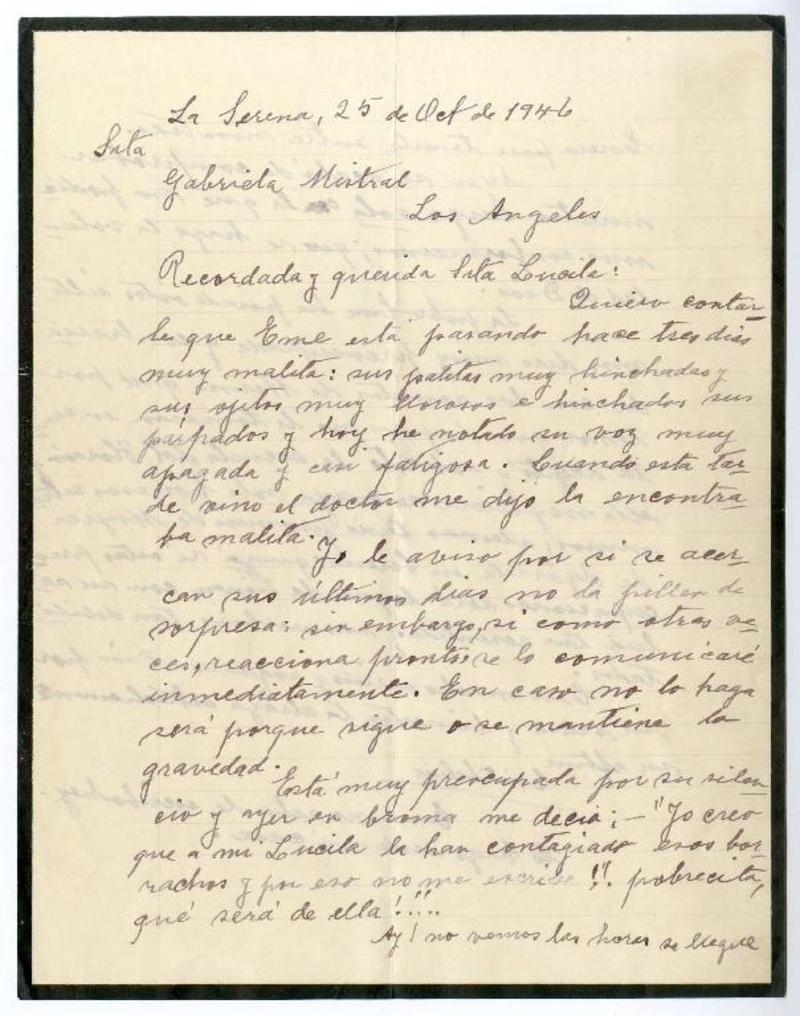 La Serena, 25 de Oct de 1946
Srta
Gabriela Mistral
Los Angeles
Recordada y querida Srta Lucila:
Quiero contar
le que Eme está pasando hace tres dias
muy malita: sus patitas muy hinchadas y
sus ojitos muy llorosos e hinchados sus
párpados y hoy he notado su voz muy
apagada y casi fatigosa. Cuando esta tar
de vino el doctor me dijo la encontra
ba malita.
Yo le aviso por si se acer
can sus últimos dias no la pillen de
sorpresa: sin embargo, si como otras ve
ces, reacciona pronto, se lo comunicaré
inmediatamente. En caso no lo haga
será porque sigue o se mantiene la
gravedad.
Está muy preocupada por su silen
cio y ayer en broma me decia; — "Yo creo
que a mi Lucila la han contagiado esos bor
rachos y por eso no me escribe"!. pobrecita,
qué será de ella!....
Ay! no vemos las horas se llegue